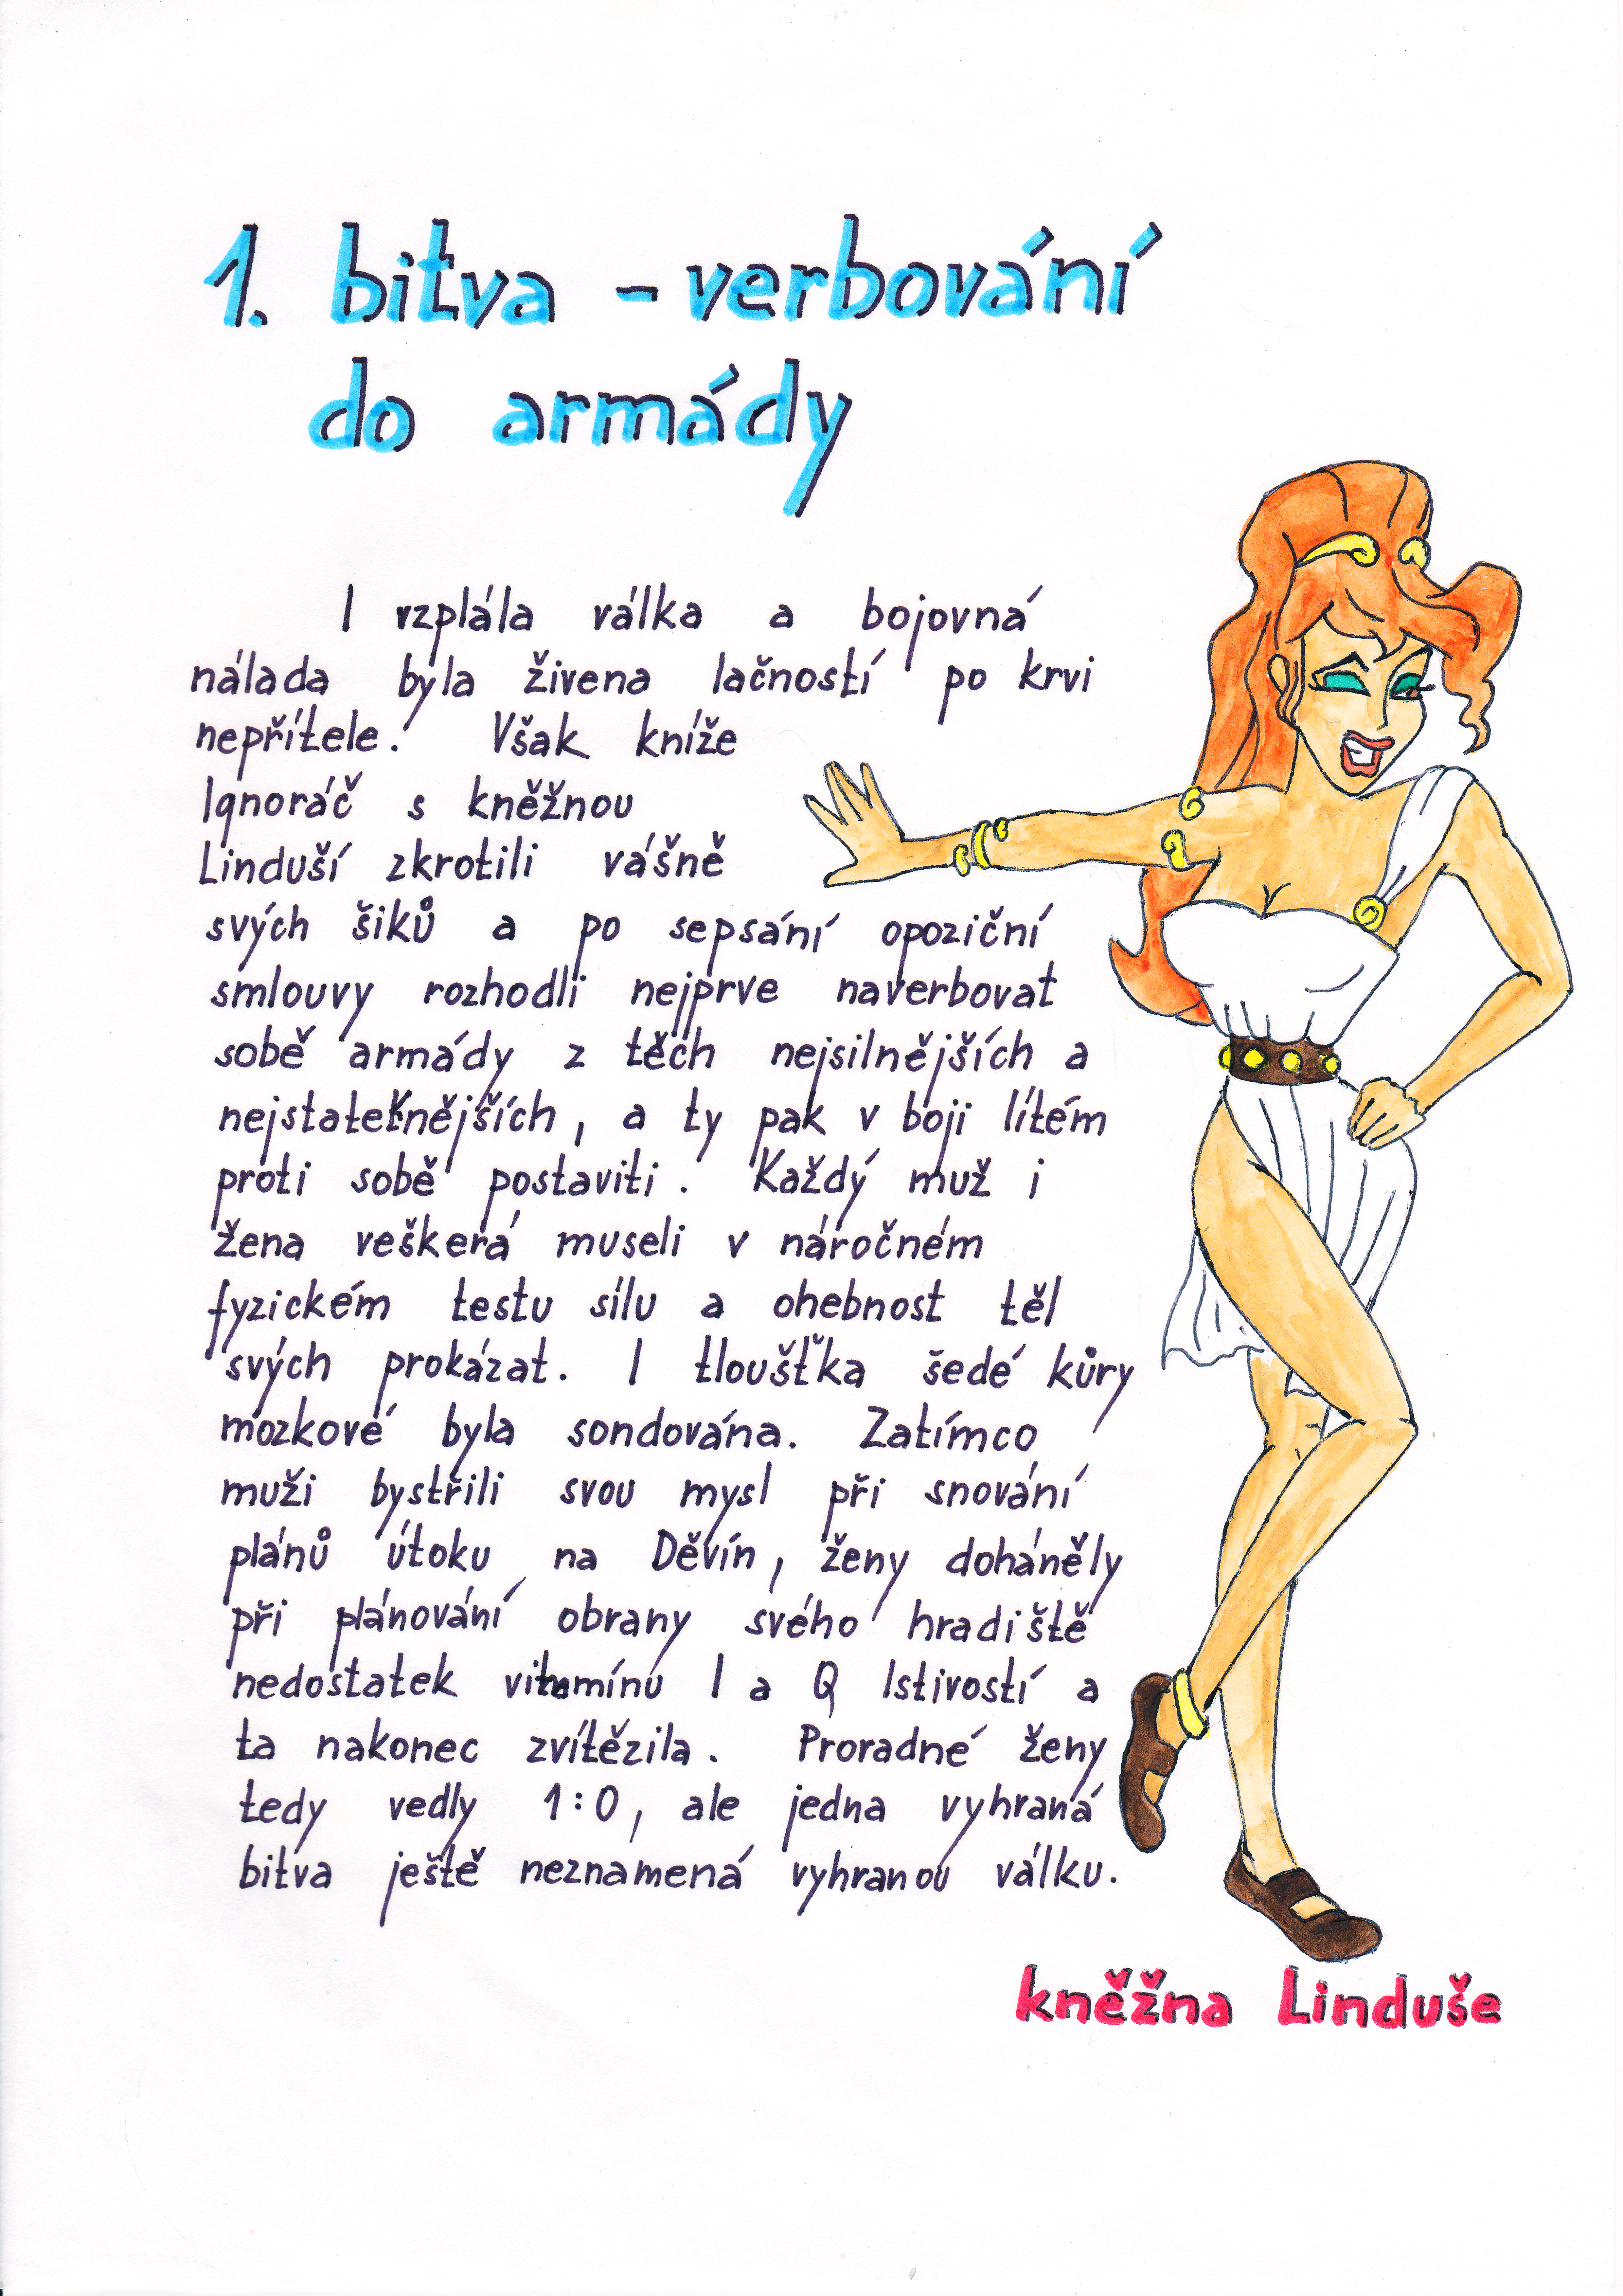 1. bitva - verbování
do armády
I vzplála válka a bojovná
nálada byla živena lačností po krvi
nepřítele. Však kníže
Ignoráč s kněžnou
Linduší zkrotili vášně
svých šiků a po sepsání opoziční
smlouvy rozhodli nejprve naverbovat
sobě armády z těch nejsilnějších a
nejstatečnějších, a ty pak v boji lítém
proti sobě postaviti. Každý muž i
žena veškerá museli v náročném
fyzickém testu sílu a ohebnost těl
svých prokázat. I tloušťka šedé kůry
mozkové byla sondována. Zatímco
muži bystřili svou mysl při snování
plánů útoku na Děvín, ženy doháněly
při plánování obrany svého hradiště
nedostatek vitamínu I a Q lstivostí a
ta nakonec zvítězila. Proradné ženy
tedy vedly 1:0, ale jedna vyhraná
bitva ještě neznamená vyhranou válku.
kněžna Linduše